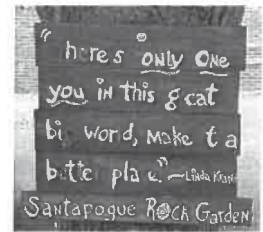 "heres only one
you in this g eat
bi word, make t a
bette pla e."~Linda Kran
Santapogue Rock Garden